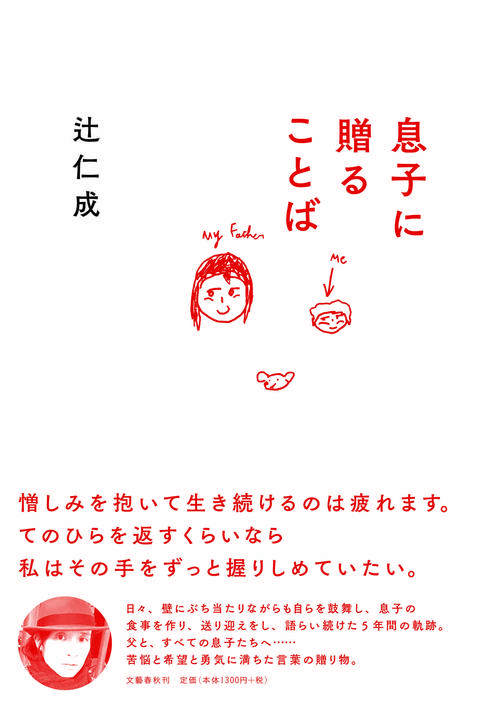 息子に
贈る
ことば
辻仁成
My Father
Me
憎しみを抱いて生き続けるのは疲れます。
てのひらを返すくらいなら
私はその手をずっと握りしめていたい。
日々、壁にぶち当たりながらも自らを鼓舞し、息子の
食事を作り、送り迎えをし、語らい続けた5年間の軌跡。
父と、すべての息子たちへ……
苦悩と希望と勇気に満ちた言葉の贈り物。
文藝春秋刊 定価(本体1300円+税)